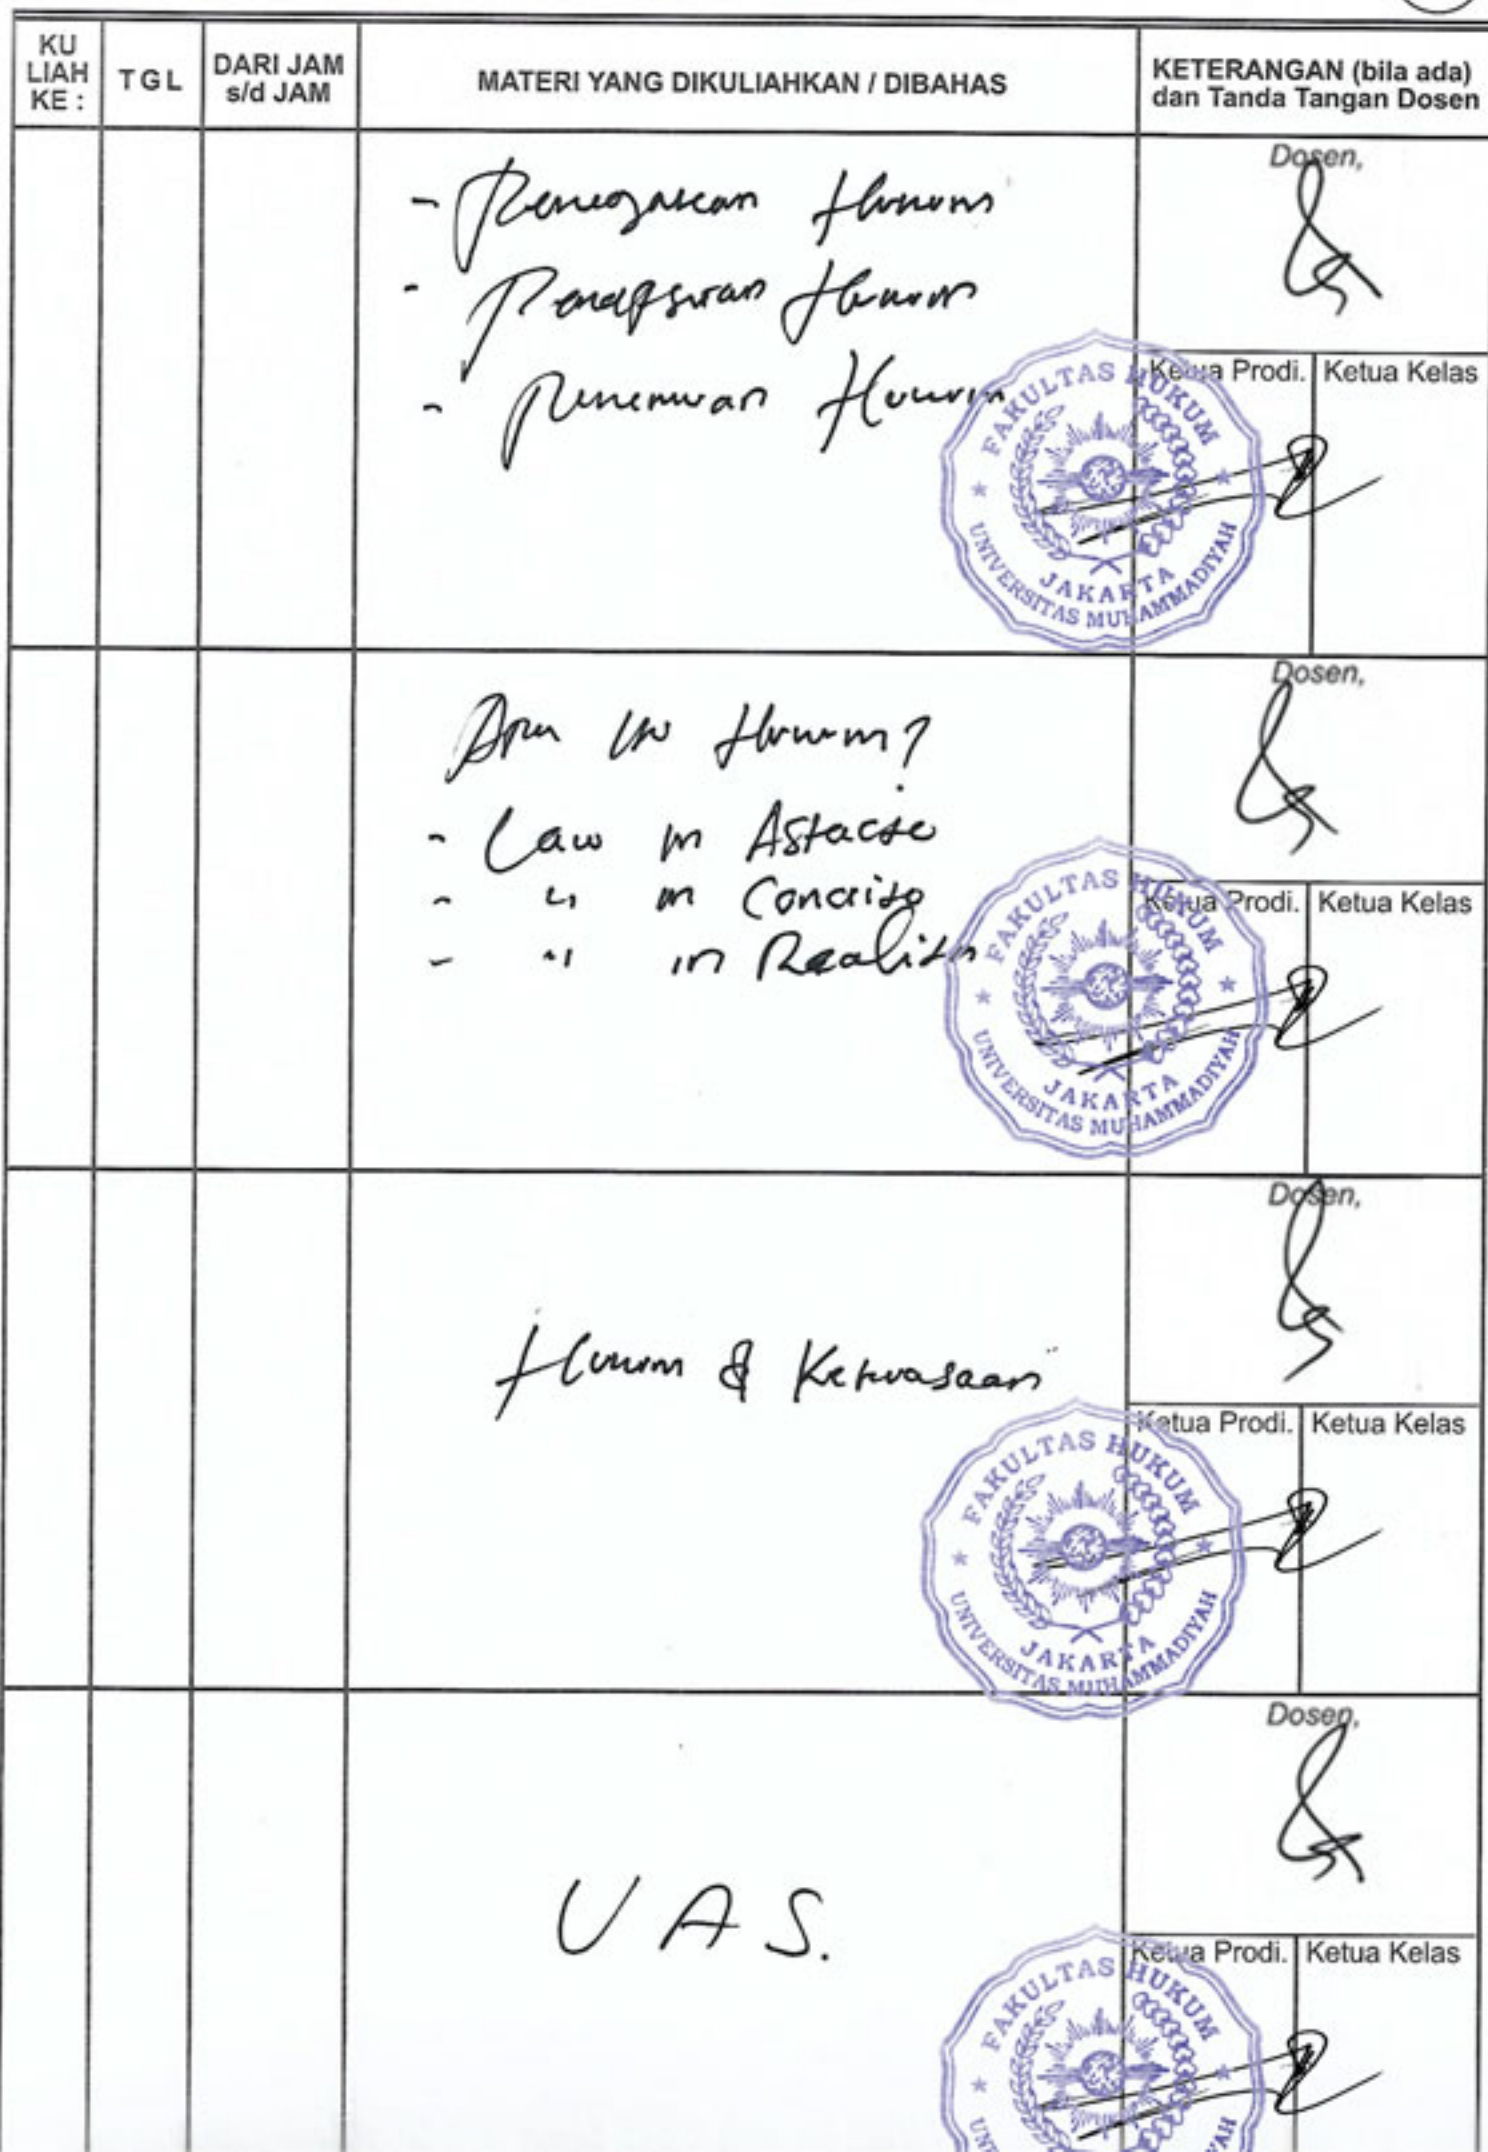 KU LIAH KE :
TGL
DARI JAM s/d JAM
MATERI YANG DIKULIAHKAN / DIBAHAS
KETERANGAN (bila ada) dan Tanda Tangan Dosen
- Penegakan Hukum
- Penafsiran Hukum
- Penemuan Hukum
Dosen,
Ketua Prodi.
Ketua Kelas
FAKULTAS HUKUM
JAKARTA
UNIVERSITAS MUHAMMADIYAH
Apa itu Hukum?
- Law in Astacto
- " in Concrito
- " in Realita
Dosen,
Ketua Prodi.
Ketua Kelas
FAKULTAS HUKUM
JAKARTA
UNIVERSITAS MUHAMMADIYAH
Hukum & Kekuasaan
Dosen,
Ketua Prodi.
Ketua Kelas
FAKULTAS HUKUM
JAKARTA
UNIVERSITAS MUHAMMADIYAH
U A S.
Dosen,
Ketua Prodi.
Ketua Kelas
FAKULTAS HUKUM